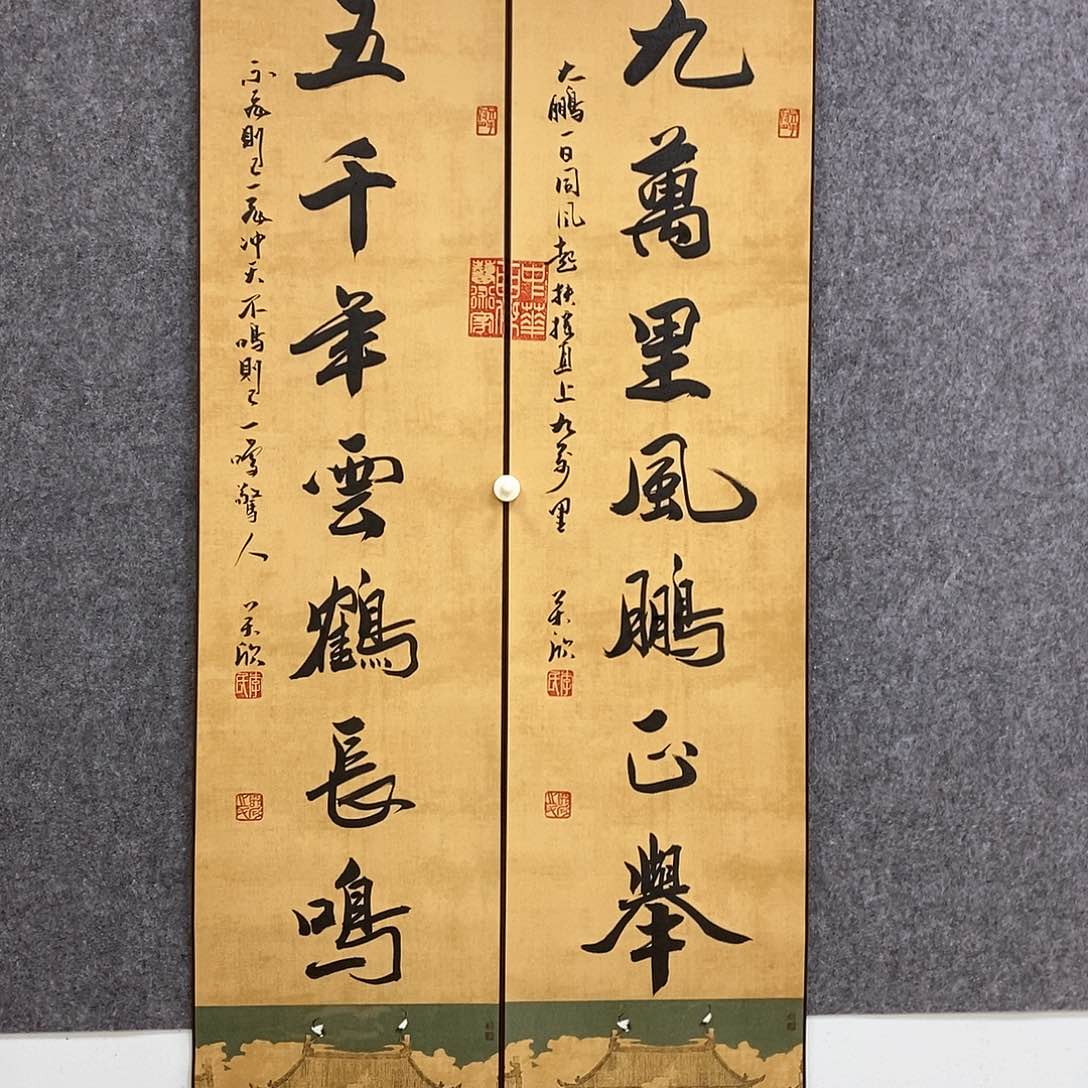 九萬里風鵬正舉
大鵬一日同風起扶搖直上九萬里
荣欣
五千年雲鶴長鳴
不飛則已一飛冲天不鳴則已一鳴驚人
荣欣